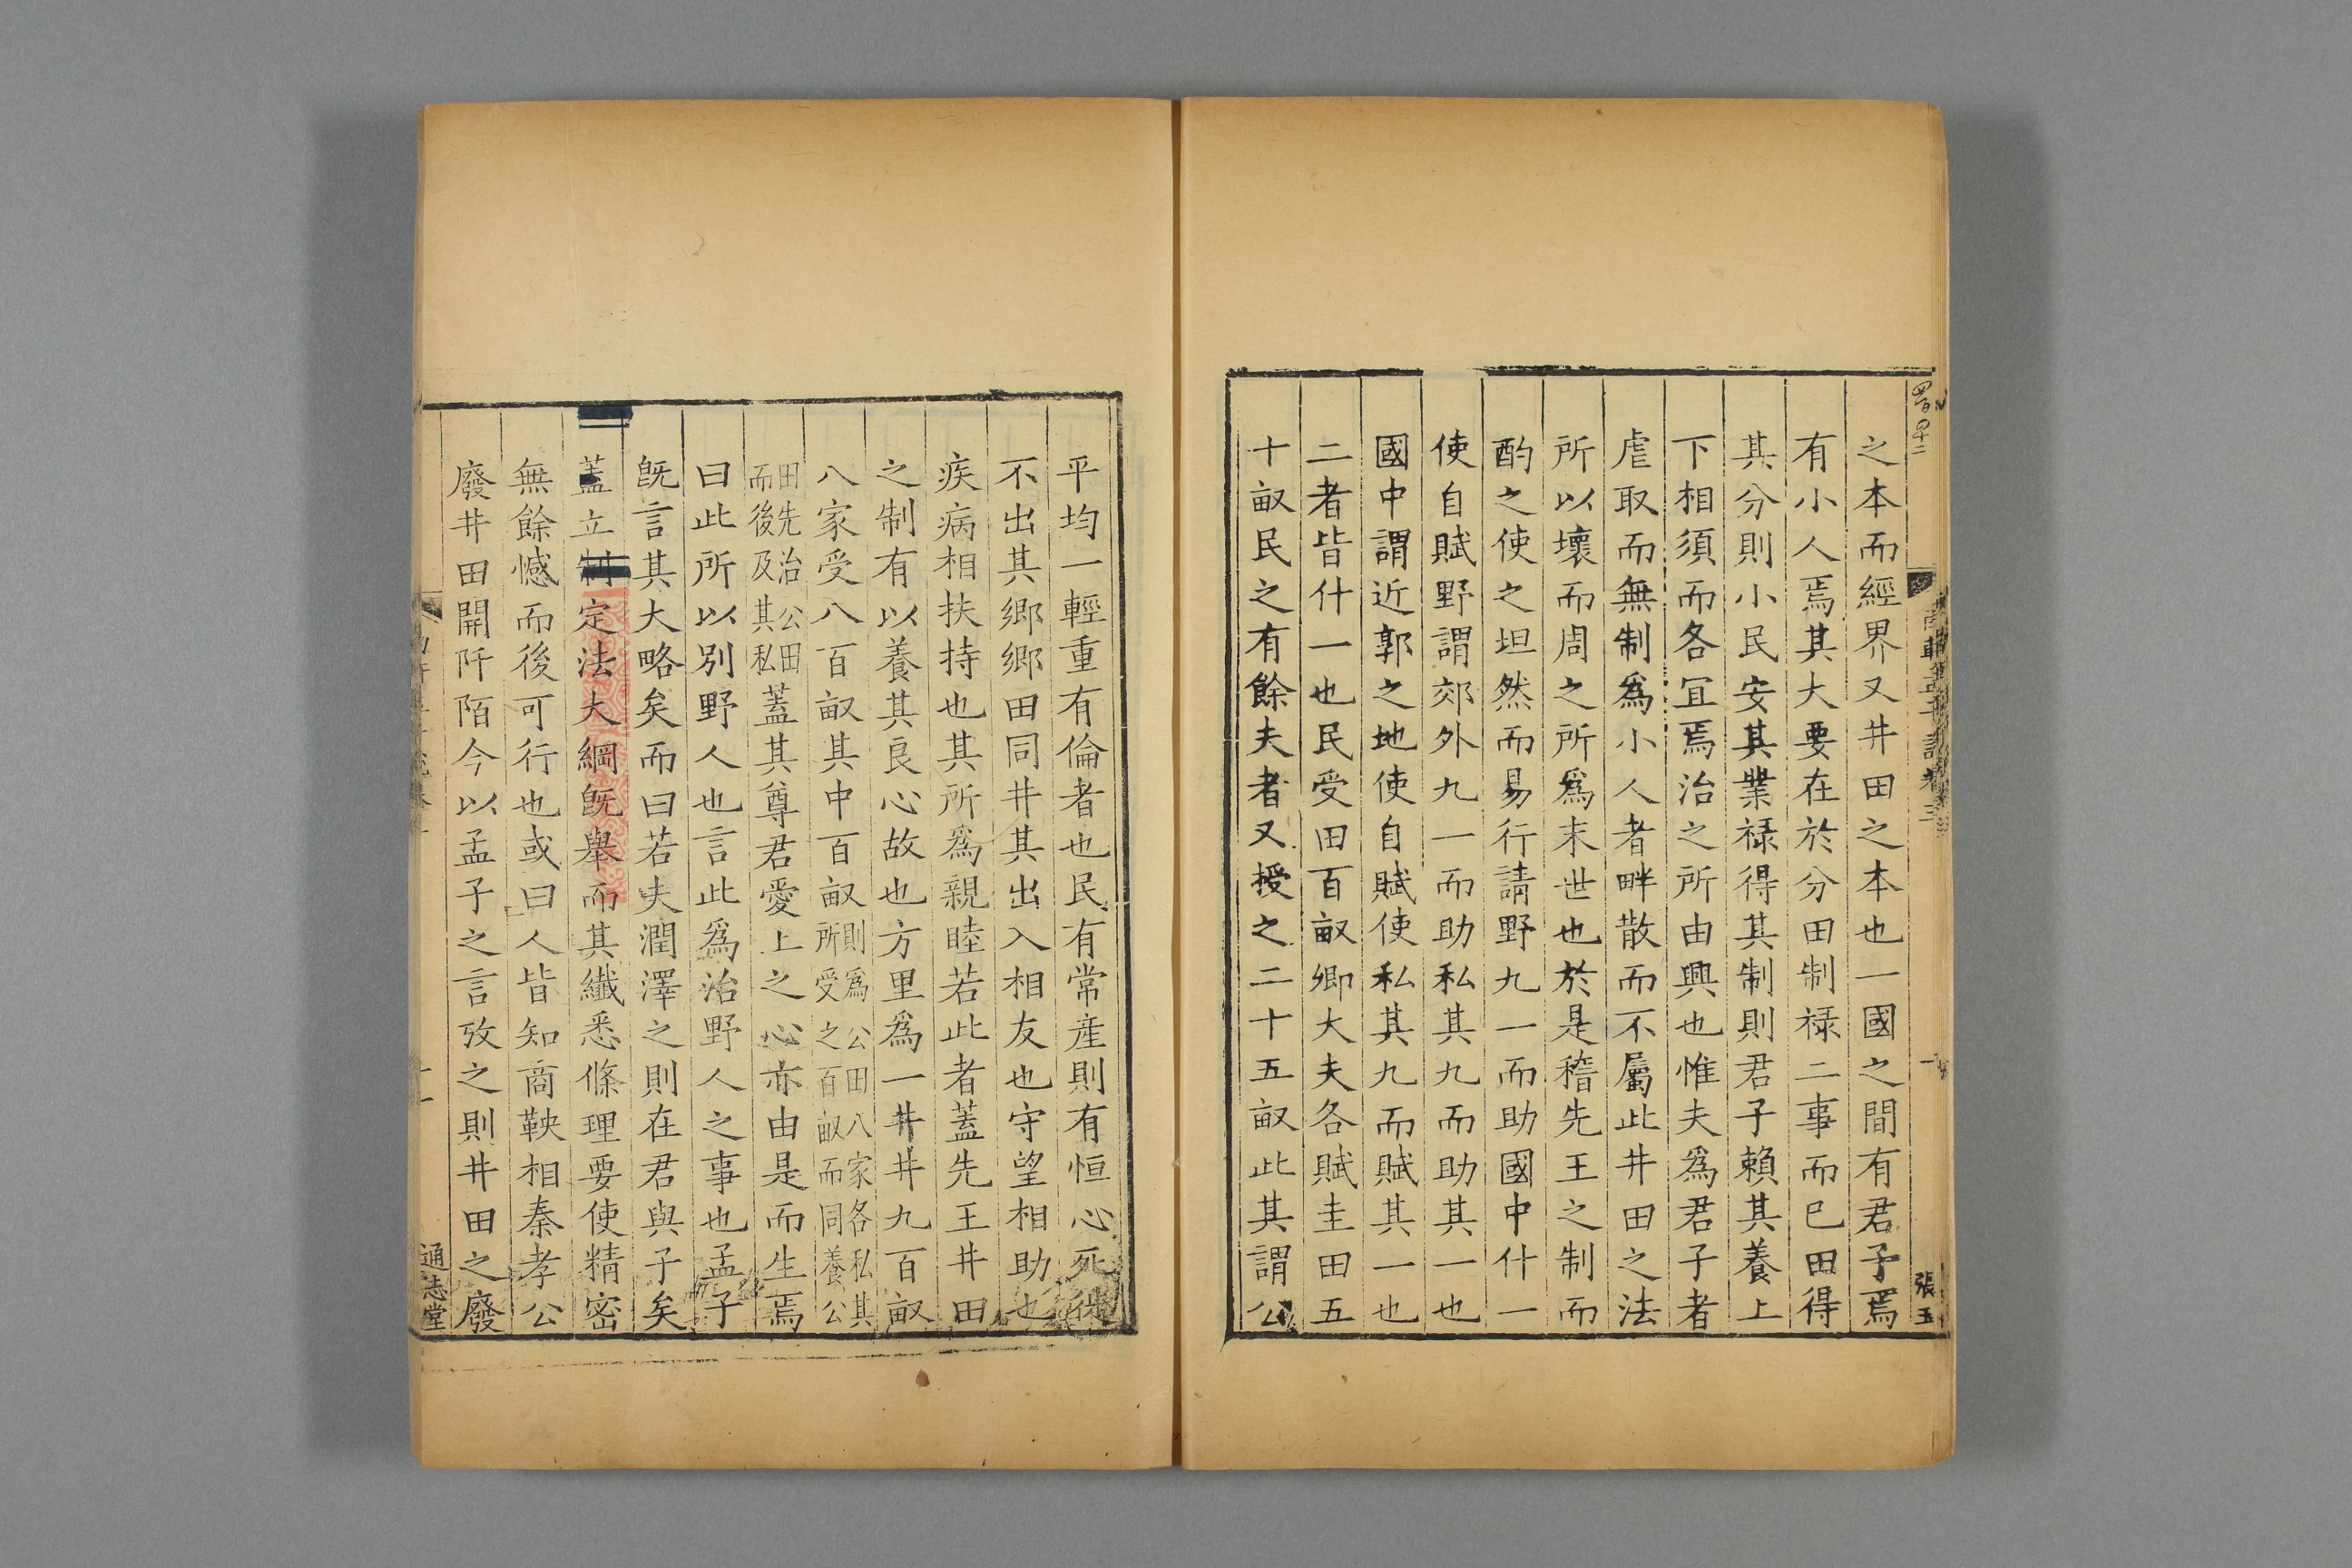 之本而經界又井田之本也一國之間有君子焉
有小人焉其大要在於分田制祿二事而已田得
其分則小民安其業祿得其制則君子賴其養上
下相須而各宜焉治之所由興也惟夫為君子者
虐取而無制爲小人者畔散而不屬此井田之法
所以壞而周之所爲末世也於是稽先王之制而
酌之使之坦然而易行請野九一而助國中什一
使自賦野謂郊外九一而助私其九而助其一也
國中謂近郭之地使自賦使私其九而賦其一也
二者皆什一也民受田百畝卿大夫各賦圭田五
十畝民之有餘夫者又授之二十五畝此其謂公
張五
平均一輕重有倫者也民有常産則有恒心死徙
不出其鄉鄉田同井其出入相友也守望相助也
疾病相扶持也其所爲親睦若此者蓋先王井田
之制有以養其良心故也方里爲一井井九百畝
八家受八百畝其中百畝則爲公田八家各私其所受之百畝而同養公
田先治公田而後及其私蓋其尊君愛上之心亦由是而生焉
曰此所以別野人也言此爲治野人之事也孟子
旣言其大略矣而曰若夫潤澤之則在君與子矣
蓋立制定法大綱旣舉而其纖悉條理要使精密
無餘憾而後可行也或曰人皆知商鞅相秦孝公
廢井田開阡陌今以孟子之言攷之則井田之廢
通志堂